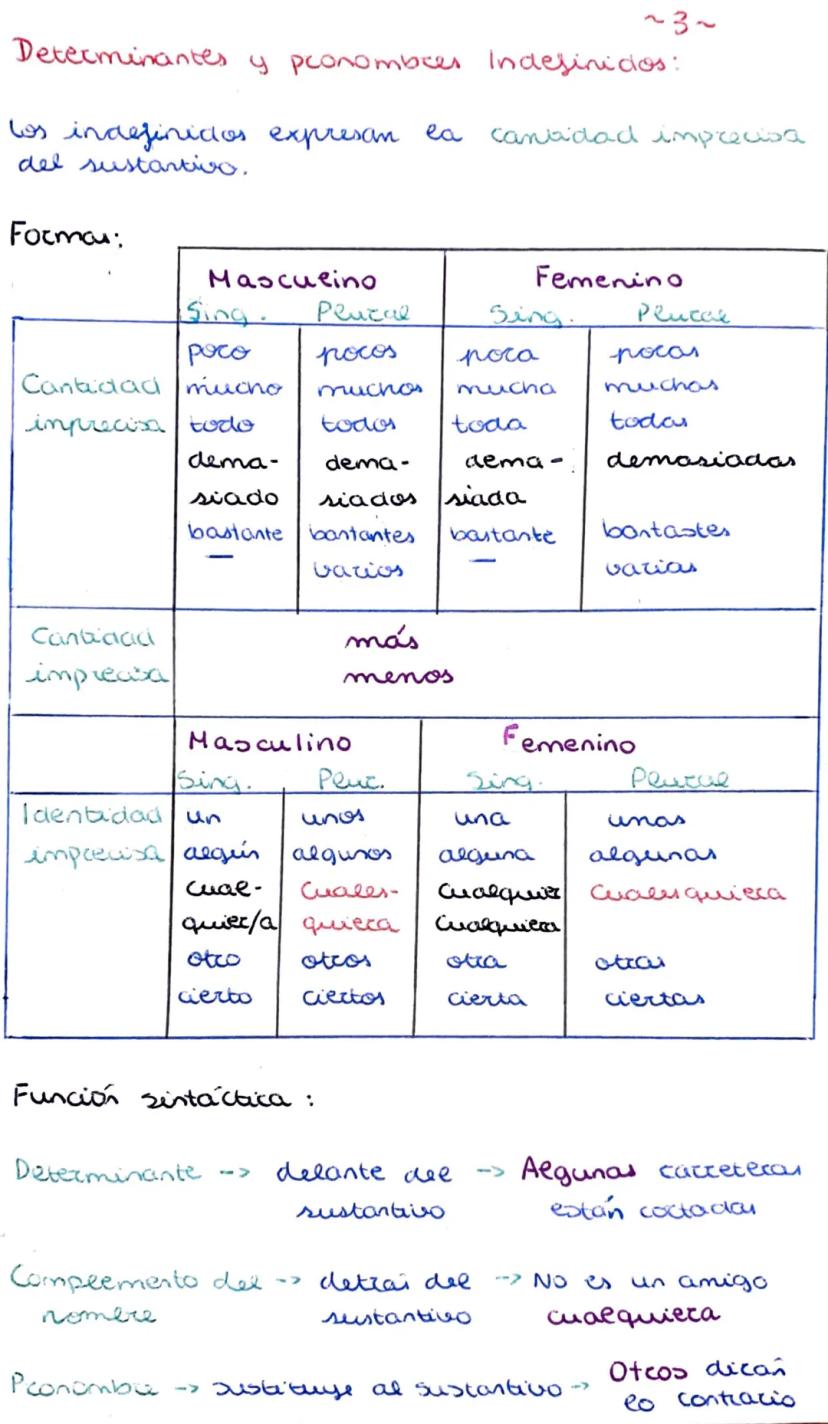 ~3~
Determinantes y pronombres Indefinidos:
Los indefinidos expresan la cantidad imprecisa
del sustantivo.
Formas:
Masculino Femenino
Sing. Plural Sing. Plural
poco pocos poca pocas
Cantidad mucho muchos mucha muchas
imprecisa todo todos toda todas
dema- dema- dema- demasiadas
siado siados siada
bastante bastantes bastante bastastes
varios varias
Cantidad más
imprecisa menos
Masculino Femenino
Sing. Plur. Sing. Plural
Identidad un unos una unas
imprecisa algún algunos alguna algunas
cual- cuales- cualquier cualesquiera
quier/a quiera cualquiera
otro otros otra otras
cierto ciertos cierta ciertas
Función sintáctica:
Determinante --> delante del --> Algunas carreteras
sustantivo están cortadas
Complemento del --> detrás del --> No es un amigo
nombre sustantivo cualquiera
Pronombre --> sustituye al sustantivo --> Otros dirán
lo contrario